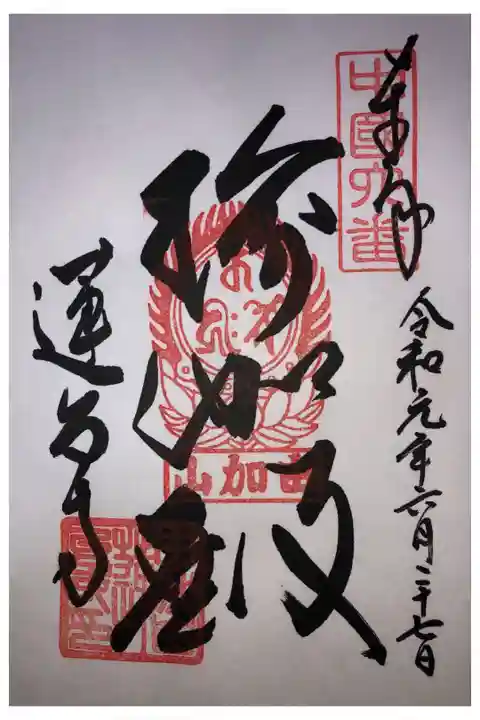 奉拝
中國六番
令和元年六月二十七日
瑜伽殿
由加山
蓮台寺